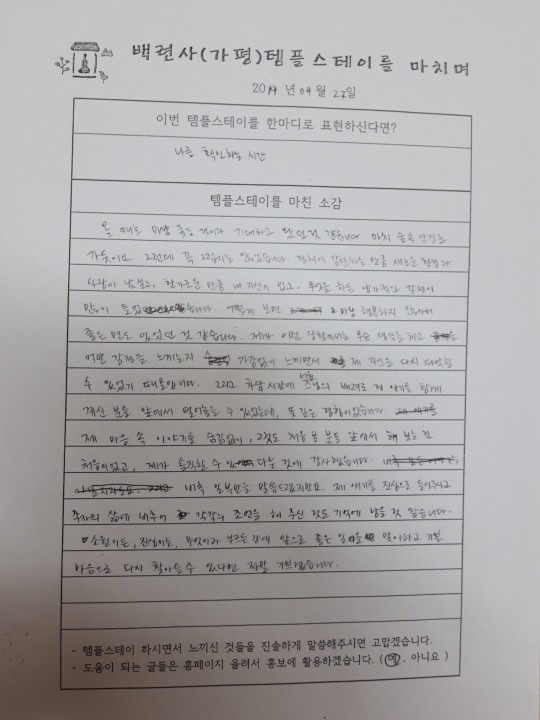 백련사(가평)템플스테이를 마치며
2019 년 09 월 23일
이번 템플스테이를 한마디로 표현하신다면?
나를 확인하는 시간
템플스테이를 마친 소감
올 때는 마냥 좋은 것이라 기대하고 왔던 것 같습니다. 마치 숲속 산장으로
가듯이요. 그런데 꼭 그렇지는 않았습니다. 경치에 감탄하는 만큼 새로운 환경과
사람이 낯설고, 한가로운 만큼 내 자신이 있고. 무엇을 하든 양가적인 감정이
많이 들었습니다. 어떻게 보면 마냥 행복하지 않아서
좋은 면도 있었던 것 같습니다. 제가 이런 상황에서는 무슨 생각을 하고
어떤 감정을 느끼는지 가감없이 느끼면서 제 자신을 다시 파악할
수 있었기 때문입니다. 그리고 차담 시간에 스님의 배려로 제 얘기를 함께
계신 분들 앞에서 털어놓을 수 있었는데, 뜻 깊은 경험이었습니다.
제 마음 속 이야기를 숨김없이, 그것도 처음 본 분들 앞에서 해 보는 건
처음이었고, 제가 솔직할 수 있다는 것에 감사했습니다.
비록 일부만을 말씀드렸지만요. 제 얘기를 진심으로 들어주시고
각자의 삶에 비추어 각각의 조언을 해 주신 것도 기억에 남을 것 같습니다.
소원이든, 진심이든, 무엇이라 부르든 간에 앞으로 좋은 일 많이하고 기쁜
마음으로 다시 찾아올 수 있다면 정말 기쁘겠습니다.
- 템플스테이 하시면서 느끼신 것들을 진솔하게 말씀해주시면 고맙겠습니다.
- 도움이 되는 글들은 홈페이지 올려서 홍보에 활용하겠습니다. ( 예, 아니요 )